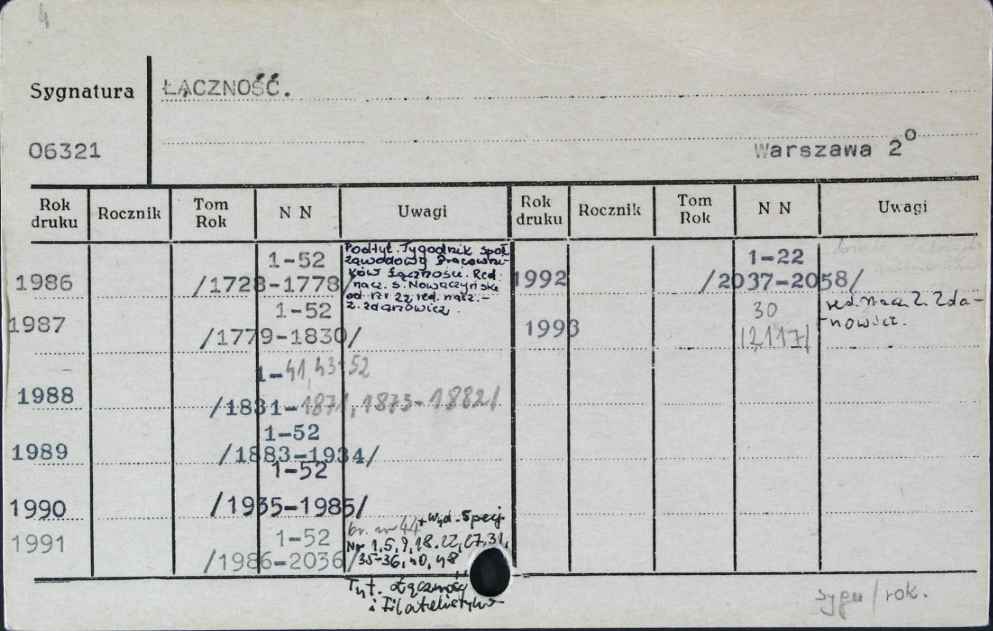 4
Sygnatura ŁĄCZNOŚĆ.
06321 Warszawa 2°
Rok druku Rocznik Tom Rok N N Uwagi Rok druku Rocznik Tom Rok N N Uwagi
1986 1-52 /1728-1778/
Podtyt. Tygodnik społ.
zawodowy Pracowni-
ków Łączności. Red.
nacz. S. Nowaczyński
od nr 22 red. nacz. -
Z. Zdanowicz.
1987 1-52 /1779-1830/
1988 1-41, 43-52 /1831-1871, 1873-1882/
1989 1-52 /1883-1934/
1990 1-52 /1935-1985/
1991 1-52 /1986-2036/
br. nr 44 + Wyd. Specj.
Nr 1, 5, 9, 18, 22, 27, 31,
35-36, 40, 48
Tyt. Łączność
i Filatelistyka
1992 1-22 /2037-2058/
red. nacz. Z. Zda-
nowicz.
1993 30 /2117/
sygn/rok.